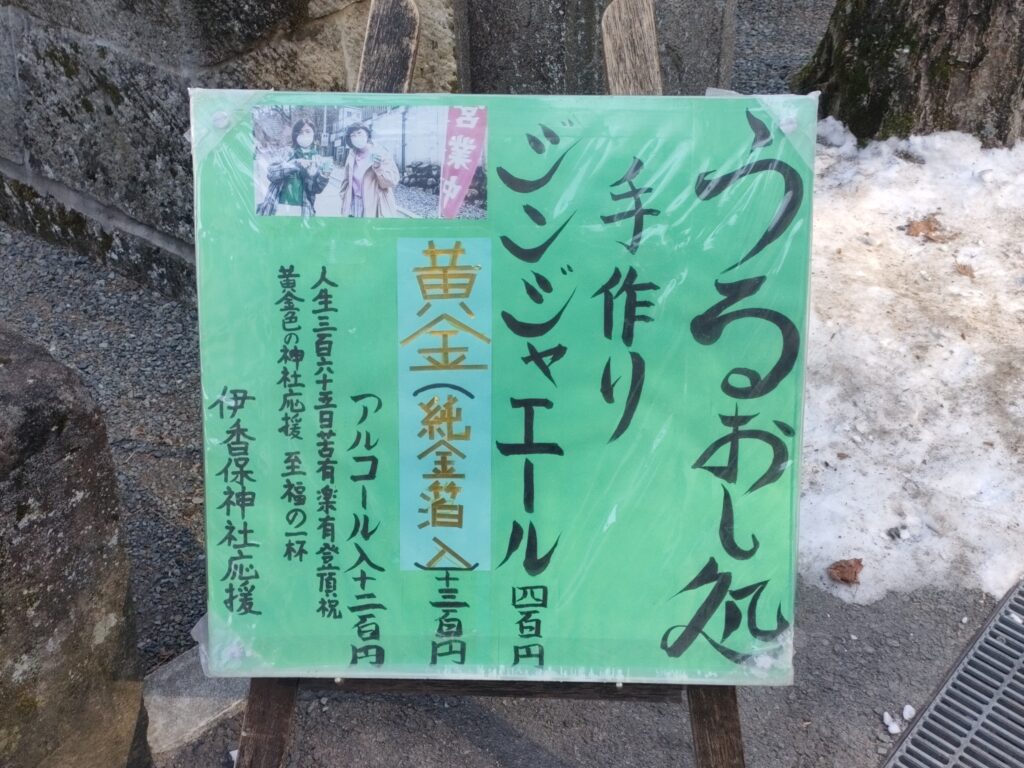 うるおし処
手作り
ジンジャエール 四百円
黄金(純金箔入)+三百円
アルコール入+二百円
人生三百六十五日苦有楽有登頂祝
黄金色の神社応援 至福の一杯
伊香保神社応援
営業中